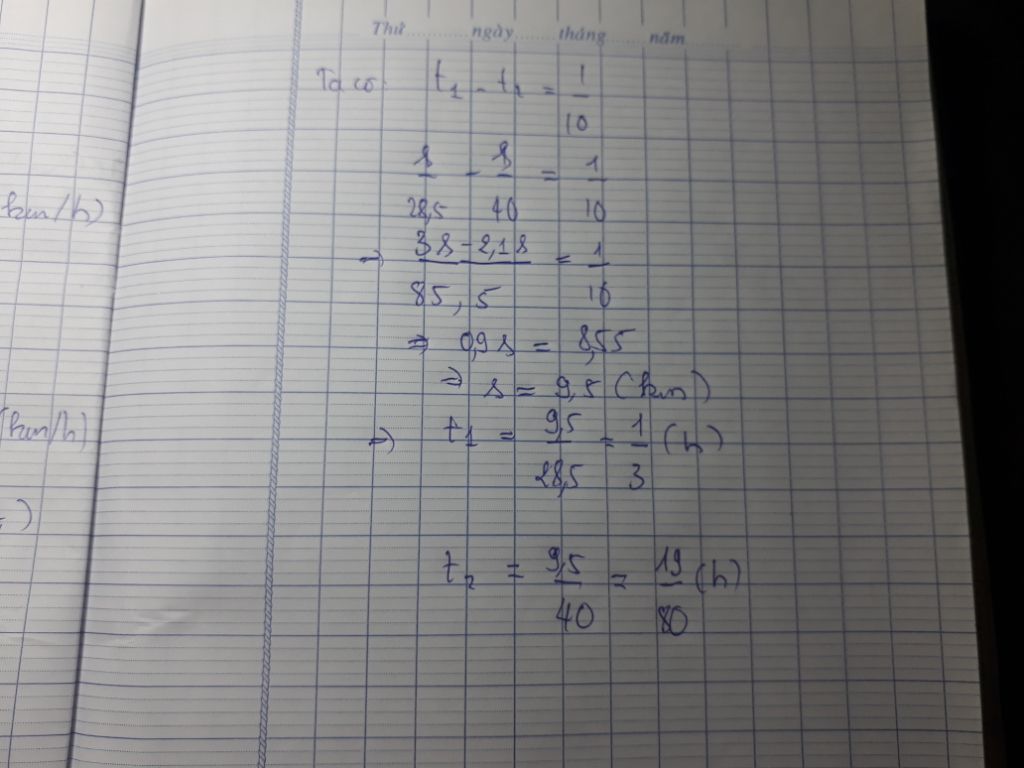 Thứ ngày tháng năm
Ta có: t₁ - t₂ = 1/10
s/28,5 - s/40 = 1/10
=> (3s - 2,1s)/85,5 = 1/10
=> 0,9s = 8,55
=> s = 9,5 (km)
=> t₁ = 9,5/28,5 = 1/3 (h)
t₂ = 9,5/40 = 19/80 (h)
km/h)
(km/h)
)